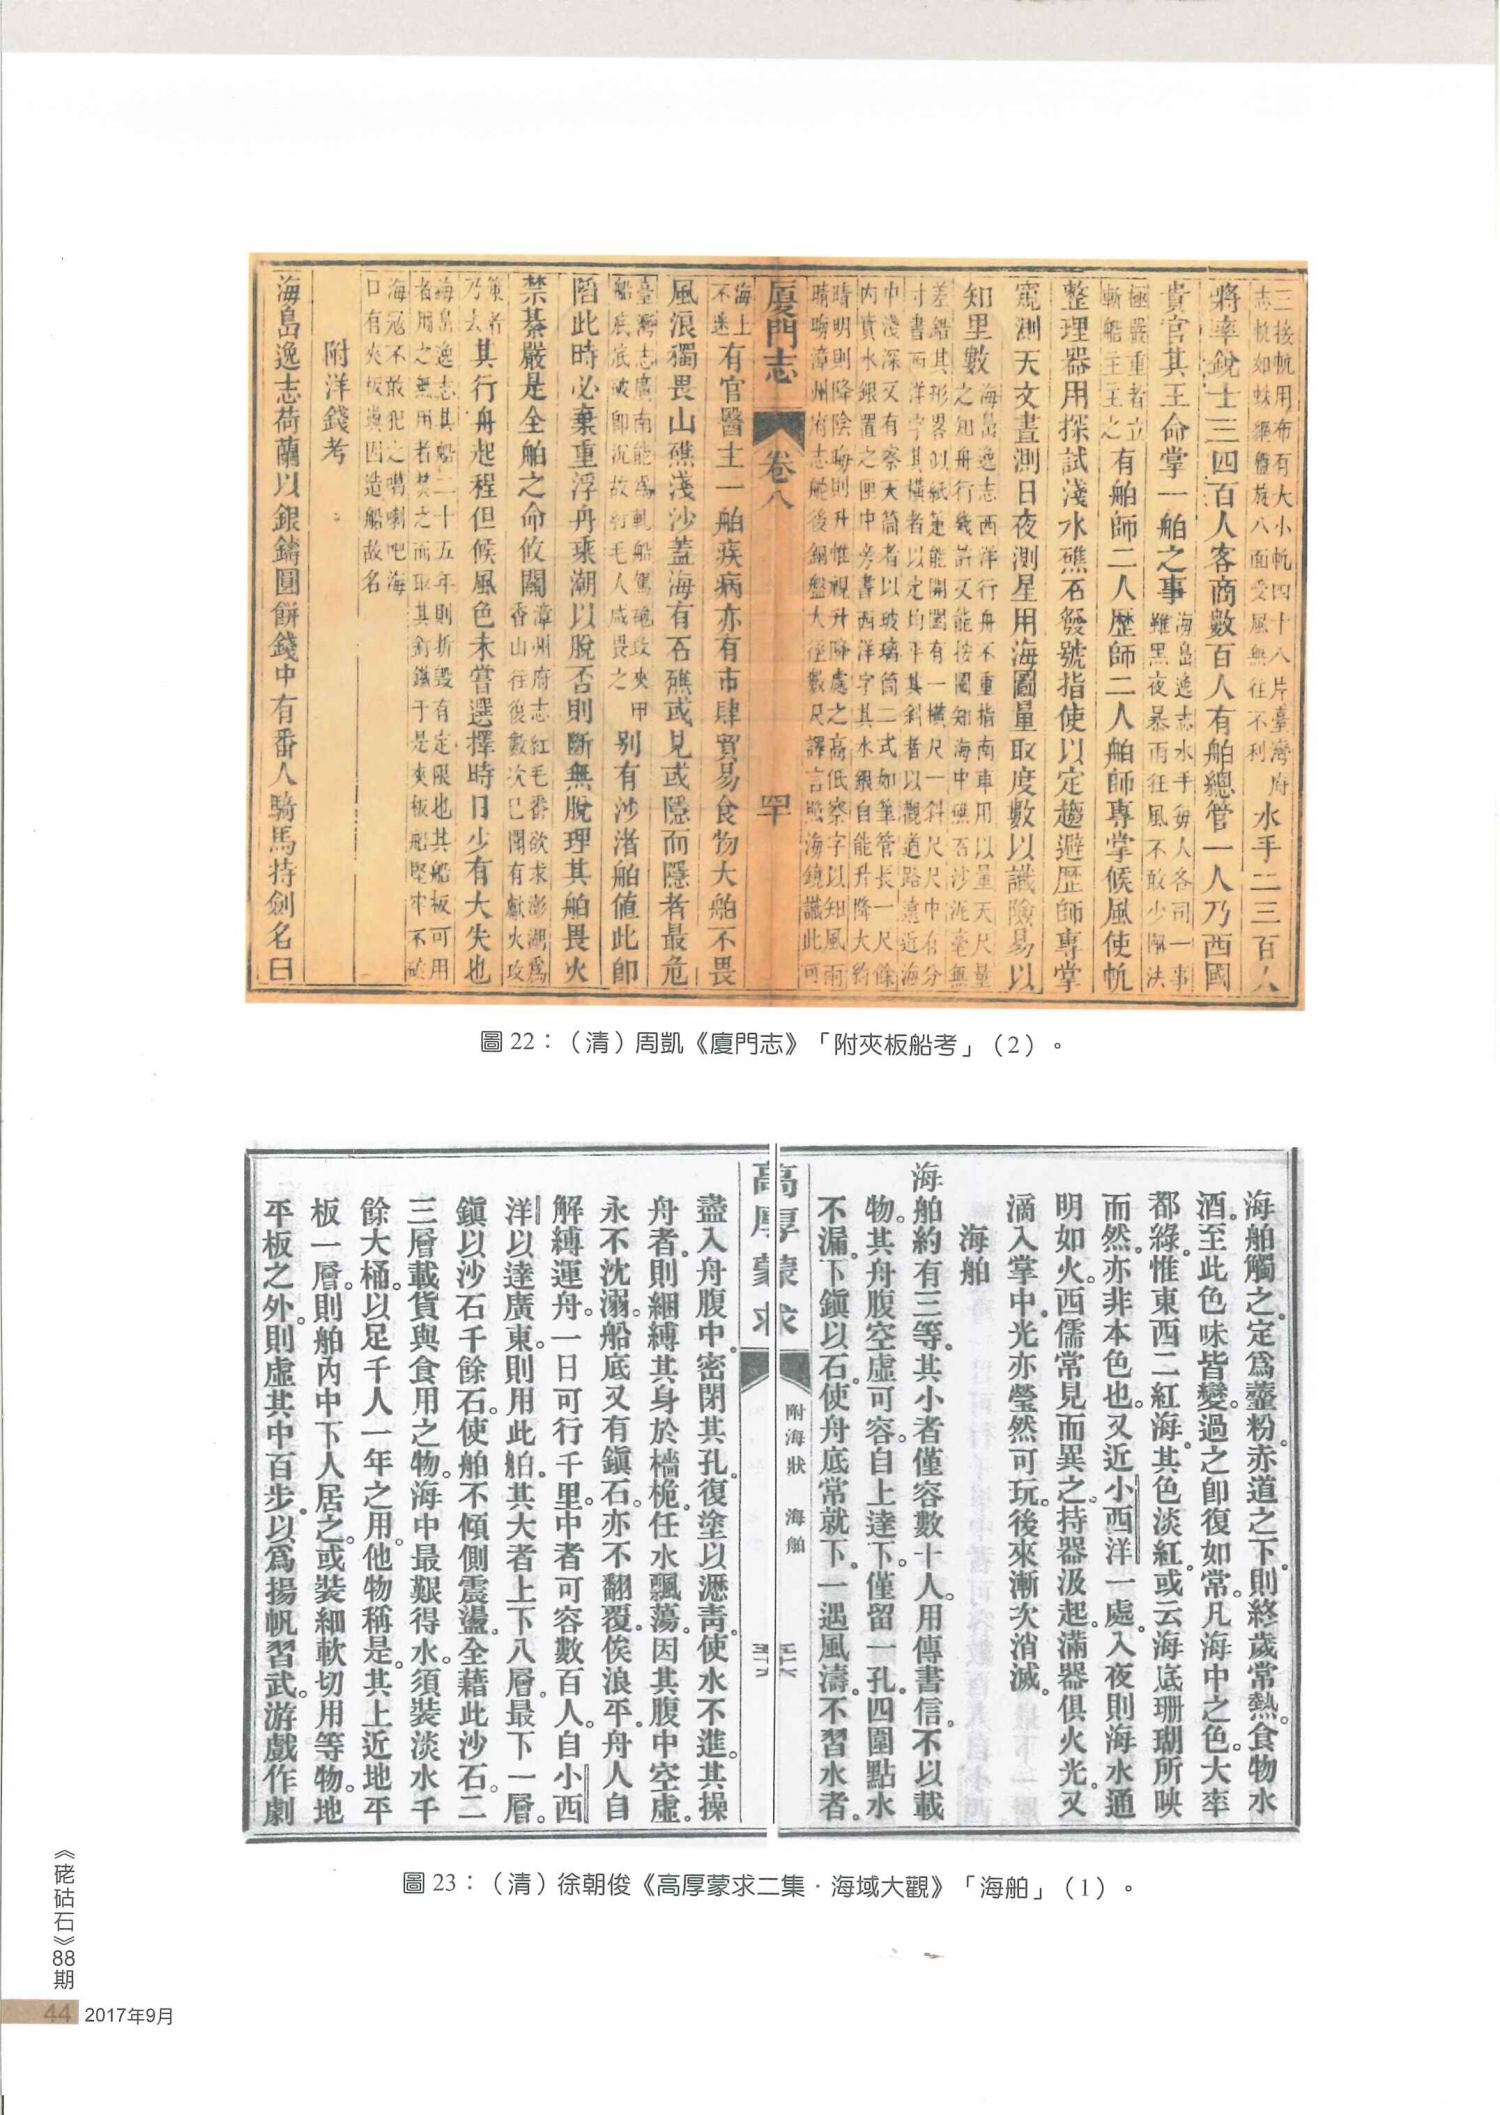 三接帆用布有大小帆四十八片臺灣府
志帆如蛛網盤旋八面受風無往不利
水手二三百人
將率銳士三四百人客商數百人有舶總管一人乃西國
貴官其王命掌一舶之事
海島逸志水手每人各司一事
雖黑夜暴雨狂風不敢少懈法
極嚴重者立
斬船主主之
有舶師二人歷師二人舶師專掌候風使帆
整理器用探試淺水礁石發號指使以定趨避歷師專掌
窺測天文晝測日夜測星用海圖量取度數以識險易以
知里數
海島逸志西洋行舟不重指南車用以量天尺量
之知舟行幾許又能按圖知海中礁石沙泥毫無
差錯其形畧似紙箑能開闔有一橫尺一斜尺尺中有分
寸書西洋字其橫者以定均平其斜者以觀道路遠近海
中淺深又有察天筒者以玻璃筒二式如筆管長一尺餘
內貯水銀置之匣中旁書西洋字其水銀自能升降大約
晴明則降陰晦則升惟視升降處之高低察字以知風雨
晴晦漳州府志舵後銅盤大徑數尺譯言照海鏡識此可
廈門志
卷八
罕
海上
不迷
有官醫主一舶疾病亦有市肆貿易食物大舶不畏
風浪獨畏山礁淺沙蓋海有石礁或見或隱而隱者最危
臺灣志廣南能爲軋船駕砲攻夾甲
船底底破卽沉故紅毛人咸畏之
別有沙渚舶值此卽
膠此時必棄重浮舟乘潮以脫否則斷無脫理其舶畏火
禁綦嚴是全舶之命攸關
漳州府志紅毛番欲求澎湖爲
香山往後數次已開有獻火攻
策者
乃去
其行舟起程但候風色未嘗選擇時日少有大失也
海島逸志其船二十五年則折毀有定限也其船板可用
者用之無用者焚之而取其釘鐵于是夾板船堅牢不破
海寇不敢犯之噶喇吧海
口有夾板嶼因造船故名
附洋錢考
海島逸志荷蘭以銀鑄圓餅錢中有番人騎馬持劍名曰
圖 22：（清）周凱《廈門志》「附夾板船考」（2）。
海舶觸之定爲虀粉赤道之下則終歲常熱食物水
酒至此色味皆變過之卽復如常凡海中之色大率
都綠惟東西二紅海其色淡紅或云海底珊瑚所映
而然亦非本色也又近小西洋一處入夜則海水通
明如火西儒常見而異之持器汲起滿器俱火光又
滴入掌中光亦瑩然可玩後來漸次消滅
海舶
海舶約有三等其小者僅容數十人用傳書信不以載
物其舟腹空虛可容自上達下僅留一孔四圍點水
不漏下鎭以石使舟底常就下一遇風濤不習水者
高厚蒙求
附海狀 海舶
盡入舟腹中密閉其孔復塗以瀝靑使水不進其操
舟者則綑縛其身於檣桅任水飄蕩因其腹中空虛
永不沈溺船底又有鎭石亦不翻覆俟浪平舟人自
解縛運舟一日可行千里中者可容數百人自小西
洋以達廣東則用此舶其大者上下八層最下一層
鎭以沙石千餘石使舶不傾側震盪全藉此沙石二
三層載貨與食用之物海中最艱得水須裝淡水千
餘大桶以足千人一年之用他物稱是其上近地平
板一層則舶內中下人居之或裝細軟切用等物地
平板之外則虛其中百步以爲揚帆習武游戲作劇
圖 23：（清）徐朝俊《高厚蒙求二集·海域大觀》「海舶」（1）。
《硓𥑮石》88期
44 2017年9月